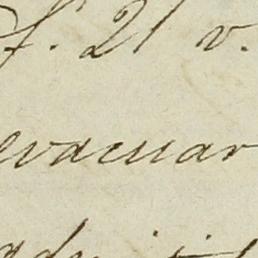 f. 21 v.
evacuar